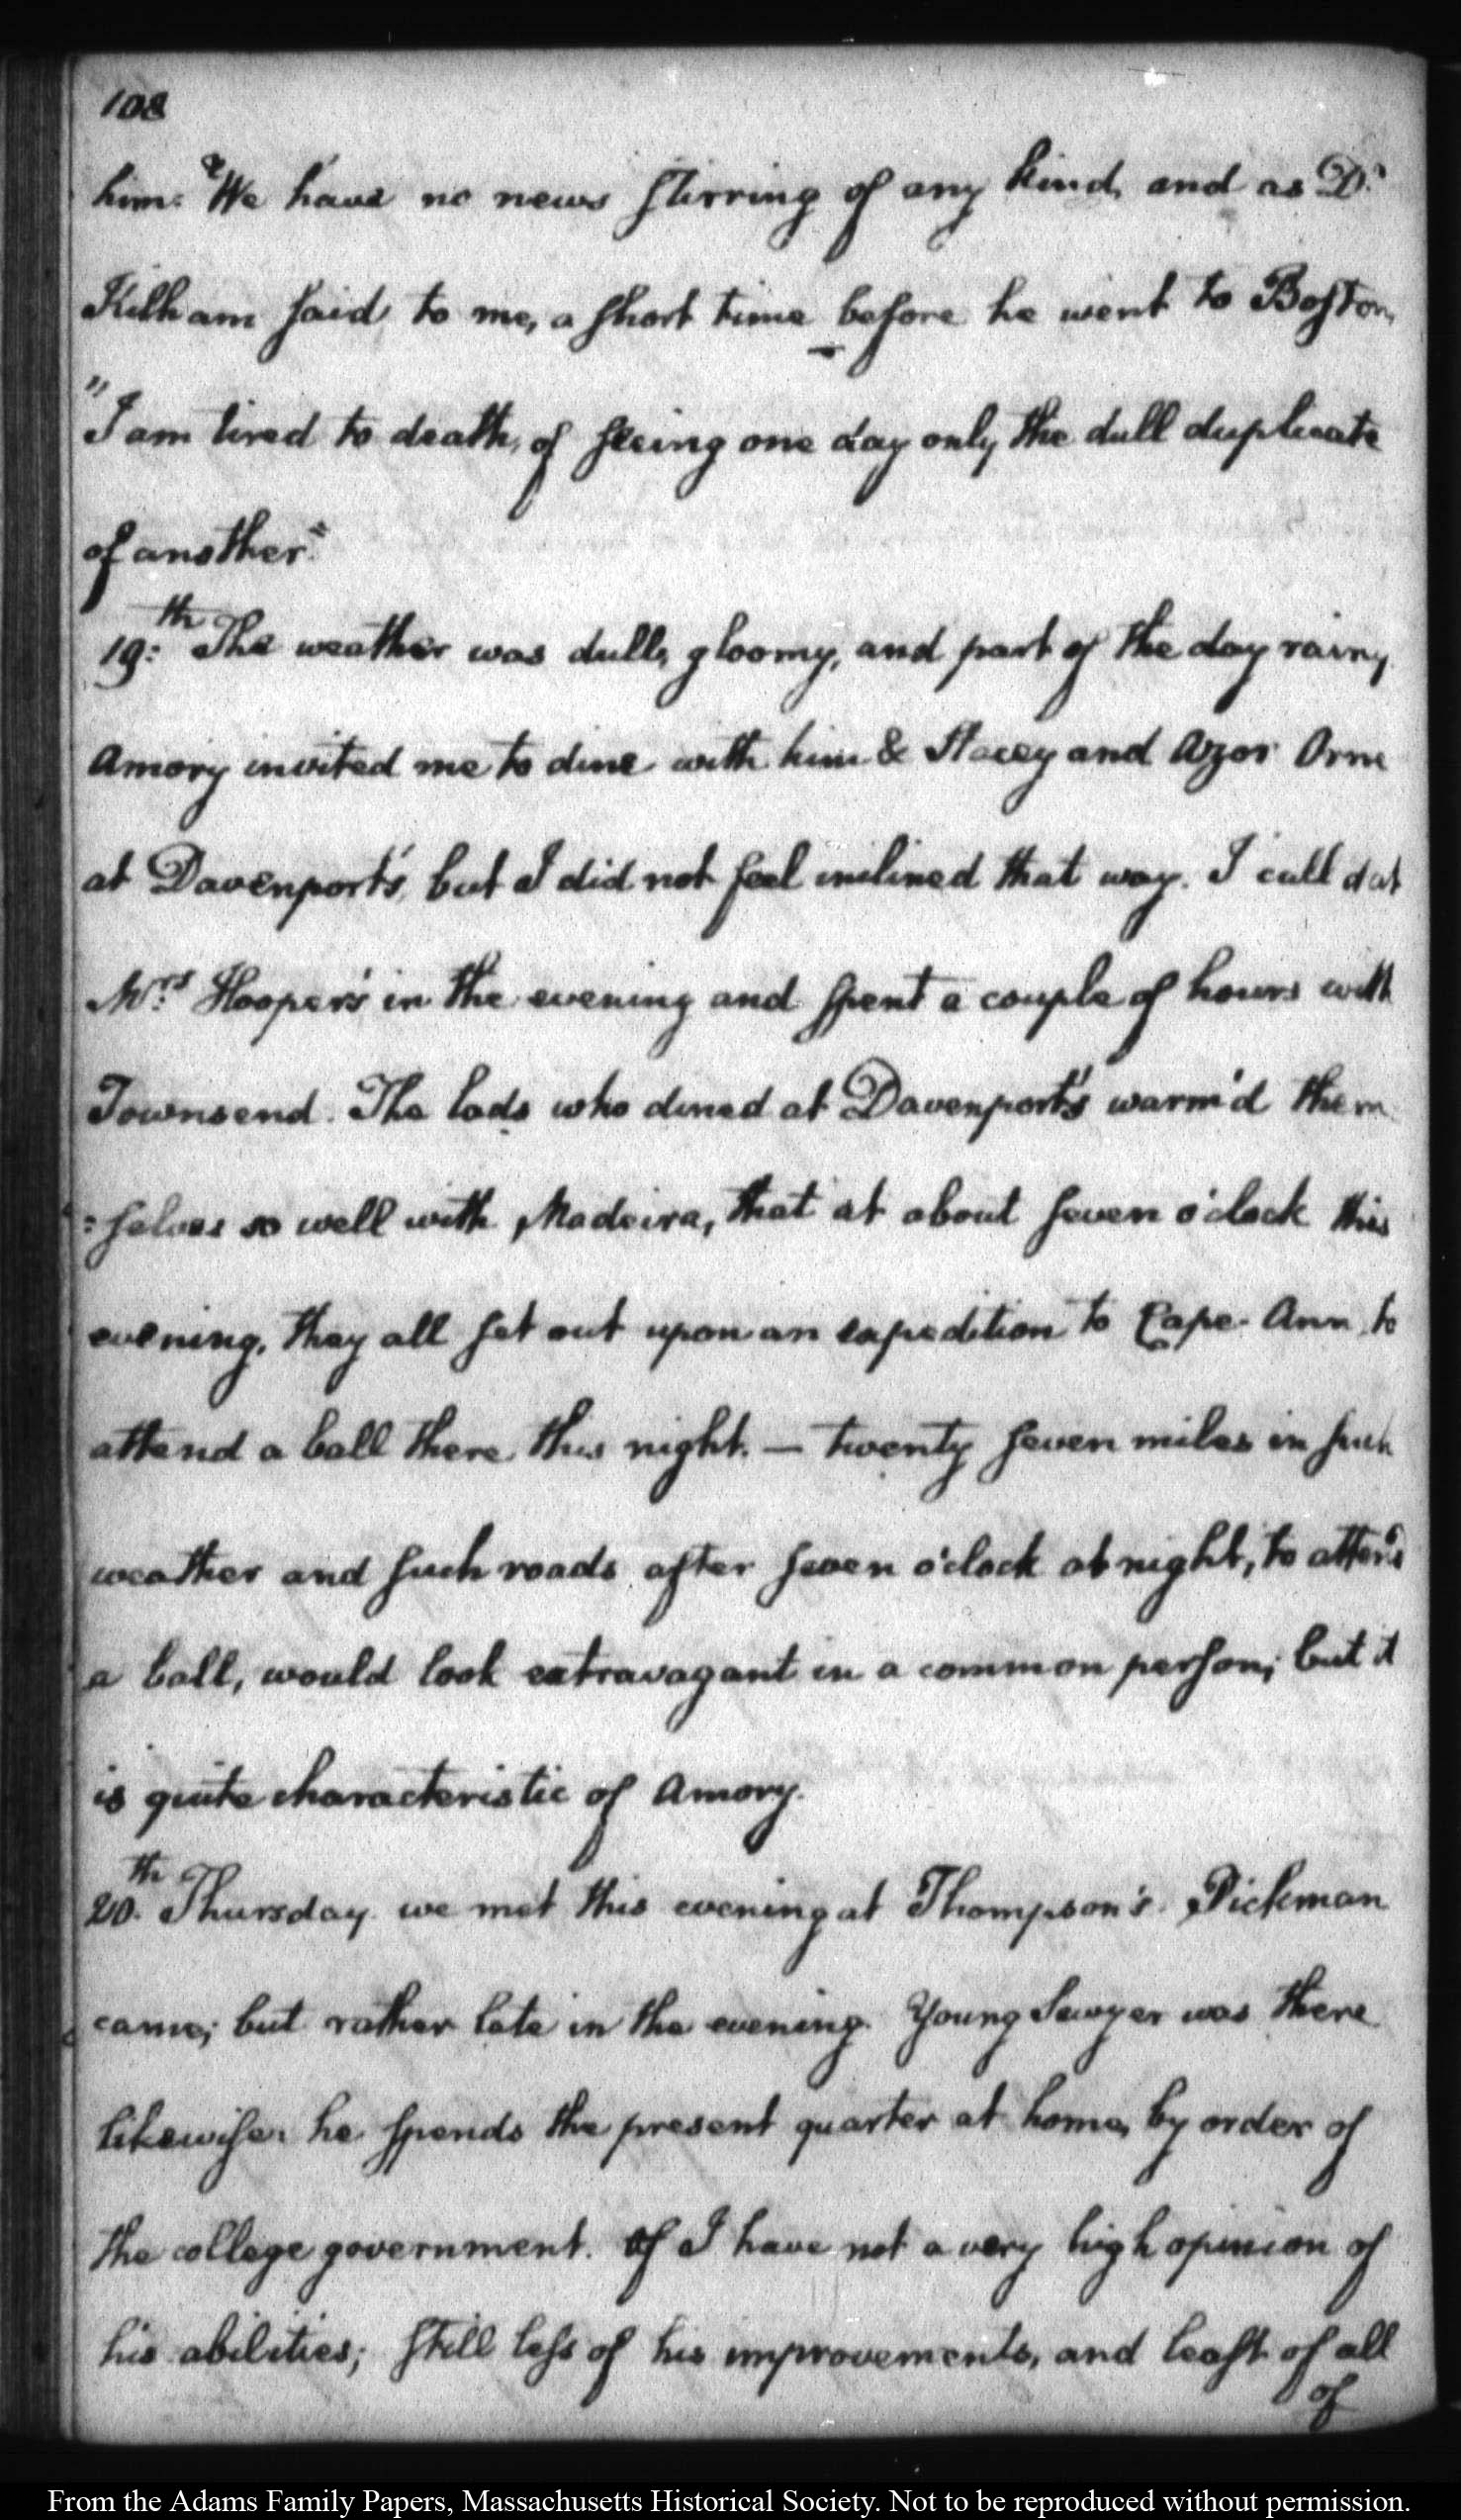 108
him: We have no news stirring of any kind, and as Dr
Kilham said to me, a short time before he went to Boston,
"I am tired to death, of seeing one day only the dull duplicate
of another."
19:th The weather was dull, gloomy, and part of the day rainy
Amory invited me to dine with him & Stacey and Azor Orne
at Davenport's, but I did not feel inclined that way. I call'd at
Mrs: Hooper's in the evening and spent a couple of hours with
Townsend. The lads who dined at Davenport's warm'd them
:selves so well with Madeira, that at about seven o'clock this
evening, they all set out upon an expedition to Cape-Ann, to
attend a ball there this night. — twenty seven miles in such
weather and such roads after seven o'clock at night, to attend
a ball, would look extravagant in a common person; but it
is quite characteristic of Amory.
20.th Thursday we met this evening at Thompson's. Pickman
came; but rather late in the evening. Young Sawyer was there
likewise: he spends the present quarter at home, by order of
the college government. I have not a very high opinion of
his abilities; still less of his improvements, and least of all
of
From the Adams Family Papers, Massachusetts Historical Society. Not to be reproduced without permission.